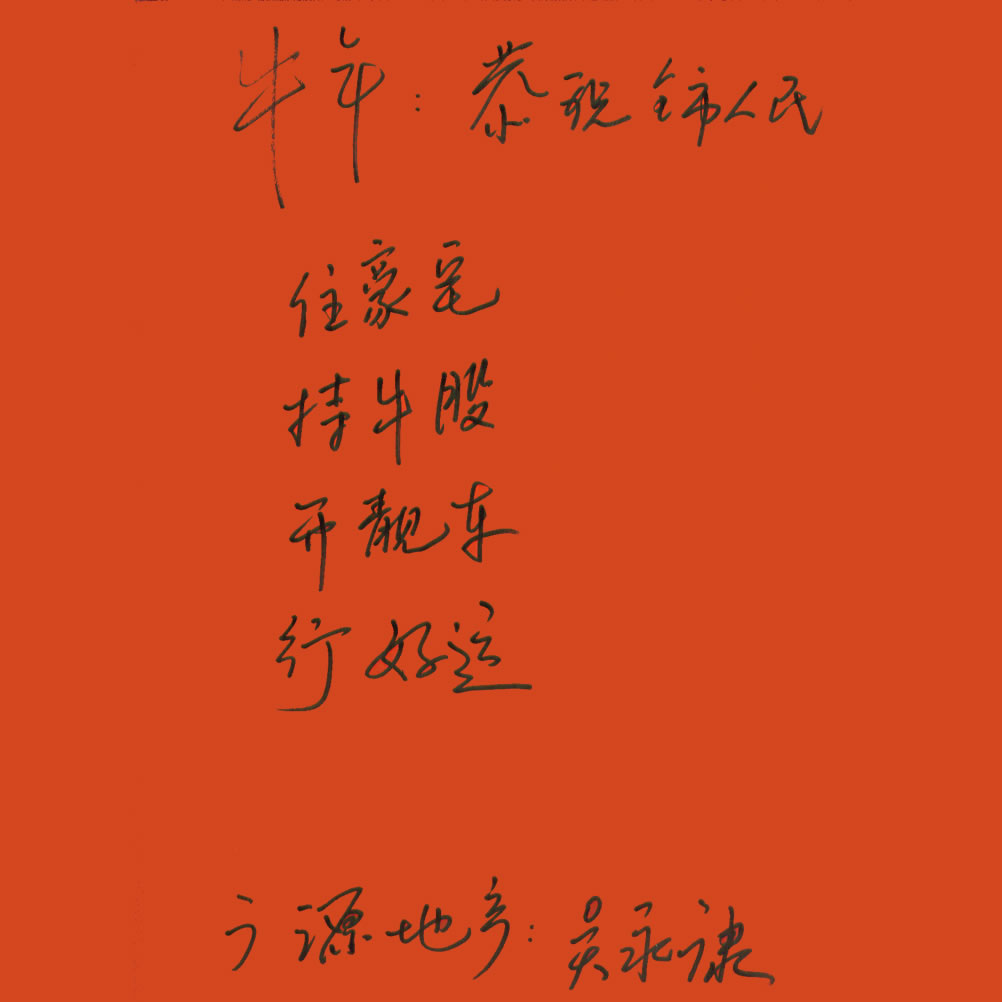 牛年：恭祝全市人民
住豪宅
持牛股
开靓车
行好运
广源地产：吴永康